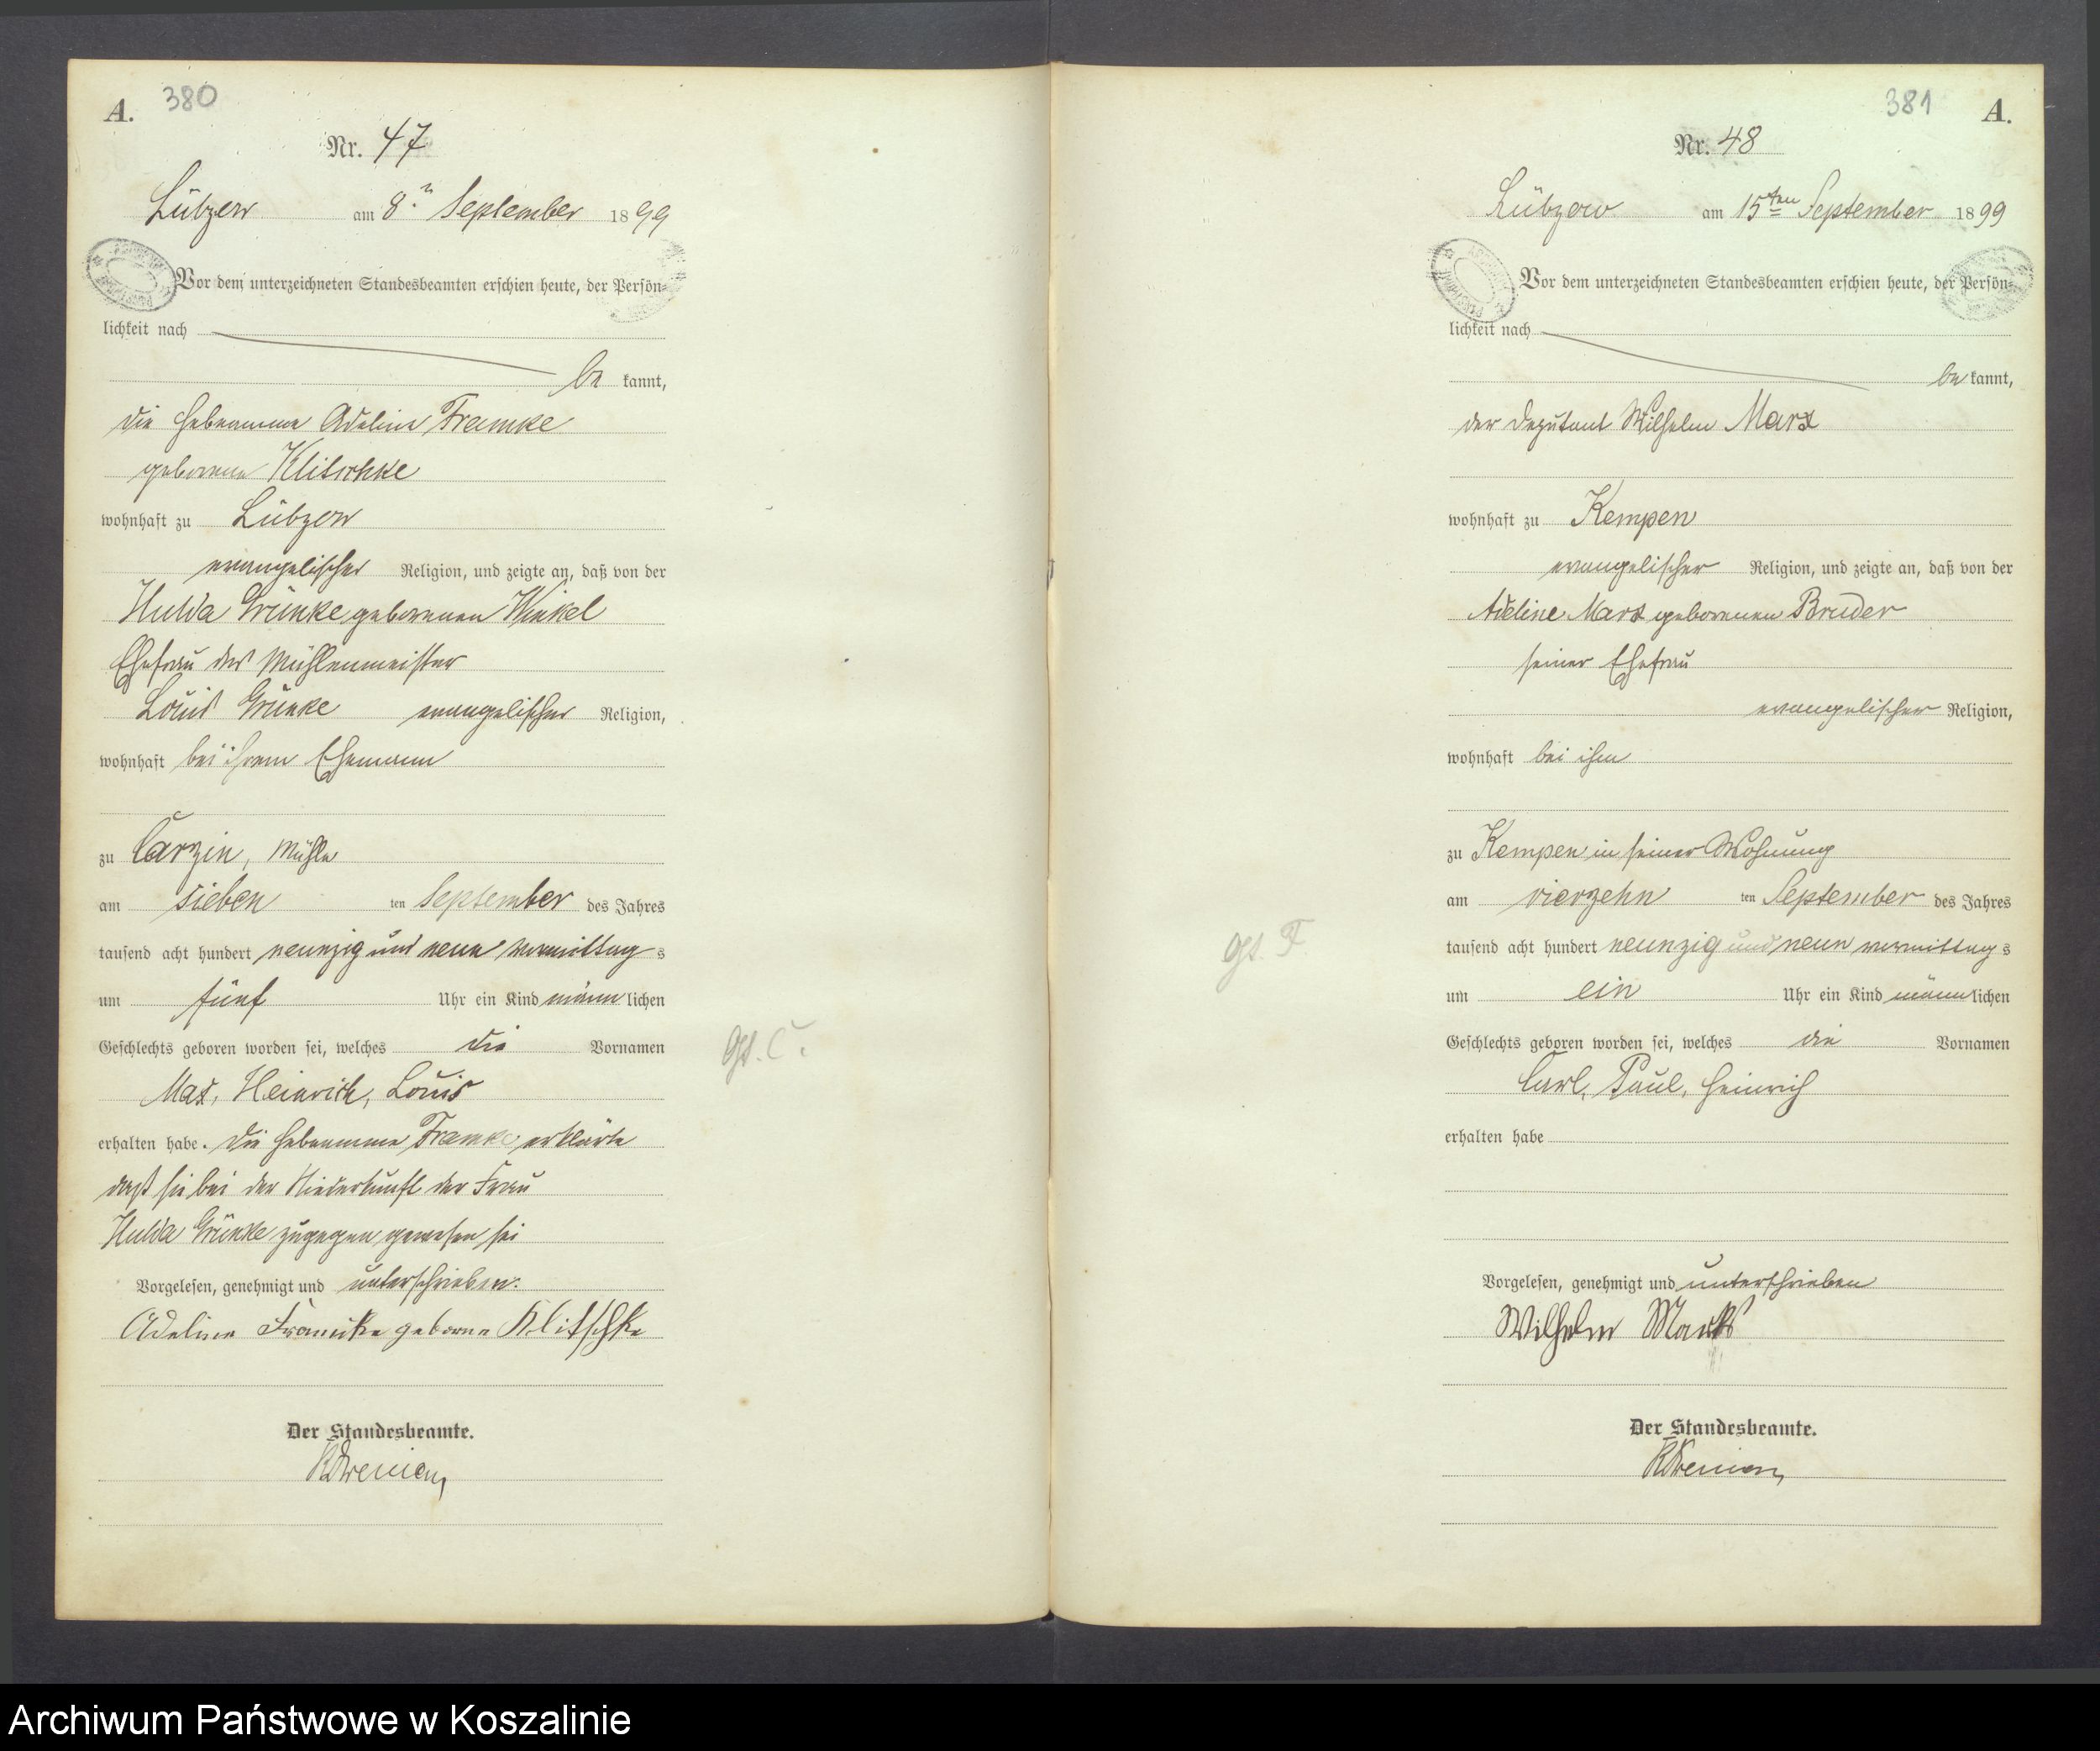 A. 380
Nr. 47
Lübzow am 8. September 1899
Vor dem unterzeichneten Standesbeamten erschien heute, der Persön-
lichkeit nach
be kannt,
die Hebeamme Adeline Framke
geborene Klitschke
wohnhaft zu Lübzow
evangelischer Religion, und zeigte an, daß von der
Hulda Grünke geborenen Winkel
Ehefrau des Mühlenmeister
Louis Grünke evangelischer Religion,
wohnhaft bei ihrem Ehemann
zu Carzin, Mühle
am sieben ten September des Jahres
tausend acht hundert neunzig und neun Vormittag s
um fünf Uhr ein Kind männ lichen
Geschlechts geboren worden sei, welches die Vornamen
Max, Heinrich, Louis
erhalten habe. Die Hebeamme Framke erklärte
daß sie bei der Niederkunft der Frau
Hulda Grünke zugegen gewesen sei
Vorgelesen, genehmigt und unterschrieben.
Adeline Framke geborne Klitschke
Der Standesbeamte.
381 A.
Nr. 48
Lübzow am 15ten September 1899
Vor dem unterzeichneten Standesbeamten erschien heute, der Persön-
lichkeit nach
be kannt,
der Deputant Wilhelm Marx
wohnhaft zu Kempen
evangelischer Religion, und zeigte an, daß von der
Adeline Marx geborenen Bruder
seiner Ehefrau
evangelischer Religion,
wohnhaft bei ihm
zu Kempen in seiner Wohnung
am vierzehn ten September des Jahres
tausend acht hundert neunzig und neun vormittag s
um ein Uhr ein Kind männ lichen
Geschlechts geboren worden sei, welches die Vornamen
Carl, Paul, Heinrich
erhalten habe
Vorgelesen, genehmigt und unterschrieben
Wilhelm Marks
Der Standesbeamte.
Archiwum Państwowe w Koszalinie